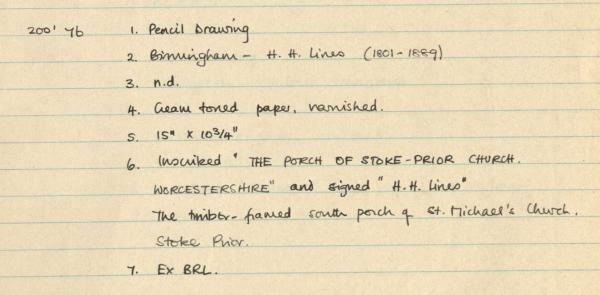 200' 76 1. Pencil Drawing
2. Birmingham - H. H. Lines (1801-1889)
3. n.d.
4. Cream toned paper, varnished.
5. 15" x 10 3/4"
6. Inscribed "THE PORCH OF STOKE-PRIOR CHURCH.
WORCESTERSHIRE" and signed "H.H. Lines"
The timber-framed south porch of St. Michael's Church.
Stoke Prior.
7. Ex BRL.